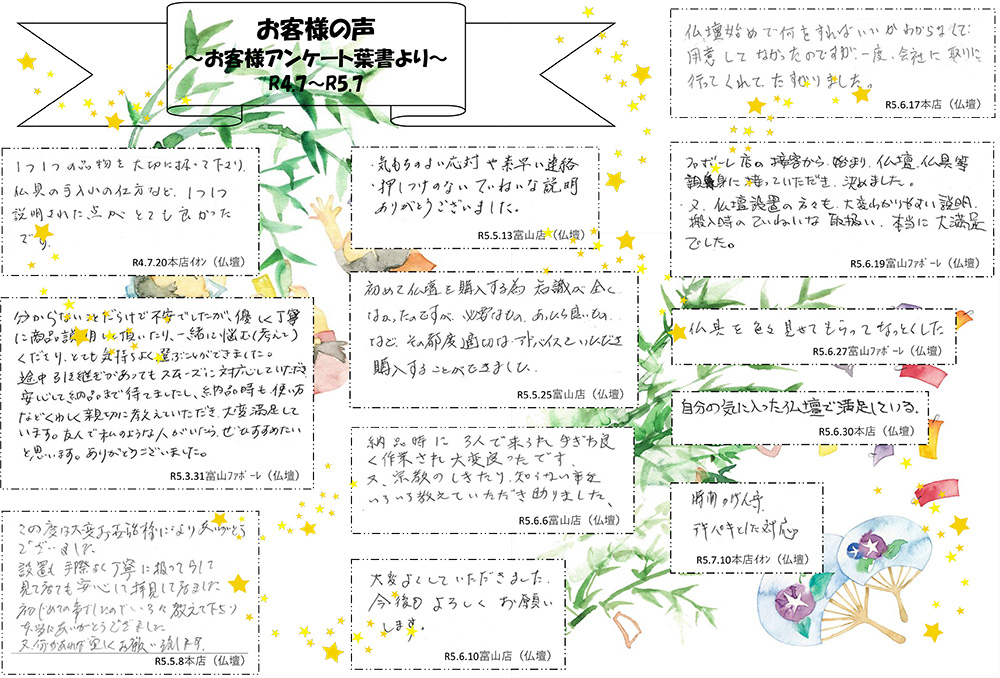 お客様の声
～お客様アンケート葉書より～
R4.7～R5.7
1つ1つの品物を大切に扱って下さり、
仏具の手入れの仕方など、1つ1つ
説明された点がとても良かった
です。
R4.7.20本店ｲｵﾝ（仏壇）
分からないことだらけで不安でしたが、優しく丁寧
に商品説明して頂いたり、一緒に悩む(考えて)
くださり、とても気持ちよく選ぶことができました。
途中引き継ぎがあってもスムーズに対応していただき
安心して納品まで待てましたし、納品時も使い方
などくわしく親切に教えていただき、大変満足して
います。友人で私のような人がいたら、ぜひすすめたい
と思います。ありがとうございました。
R5.3.31富山ﾌｧﾎﾞｰﾚ（仏壇）
この度は大変お世話様になりありがとう
ございました
設置も手際よく丁寧に扱ってらして
見て居ても安心して拝見して居ました
初じめての事でしたのでいろいろ教えて下さり
本当にありがとうございました
又何かあれば宜しくお願い致します。
R5.5.8本店（仏壇）
・気もちのよい応対や素早い連絡
・押しつけのないていねいな説明
ありがとうございました。
R5.5.13富山店（仏壇）
初めて仏壇を購入する為知識が全く
なかったのですが、必要なもの、あったら良いもの
など、その都度適切なアドバイスをいただき
購入することができました。
R5.5.25富山店（仏壇）
納品時に3人で来られ手ぎわ良
く作業され大変良ったです。
又、宗教のしきたり、知らない事を
いろいろ教えていただき助りました、
R5.6.6富山店（仏壇）
大変よくしていただきました。
今後もよろしくお願い
します。
R5.6.10富山店（仏壇）
仏壇始めで何をすればいいかわからなくて
用意してなかったのですが一度、会社に取りに
行ってくれて、たすかりました。
R5.6.17本店（仏壇）
ファボーレ店の接客から始まり、仏壇、仏具等
親身に接っていただき、決めました。
・又、仏壇設置の方々も、大変わかりやすい説明、
搬入時のていねいな取扱い、本当に大満足
でした。
R5.6.19富山ﾌｧﾎﾞｰﾚ（仏壇）
仏具を色々見せてもらってなっとくした
R5.6.27富山ﾌｧﾎﾞｰﾚ（仏壇）
自分の気に入った仏壇で満足している。
R5.6.30本店（仏壇）
時間のげん守
テキパキとした対応
R5.7.10本店ｲｵﾝ（仏壇）